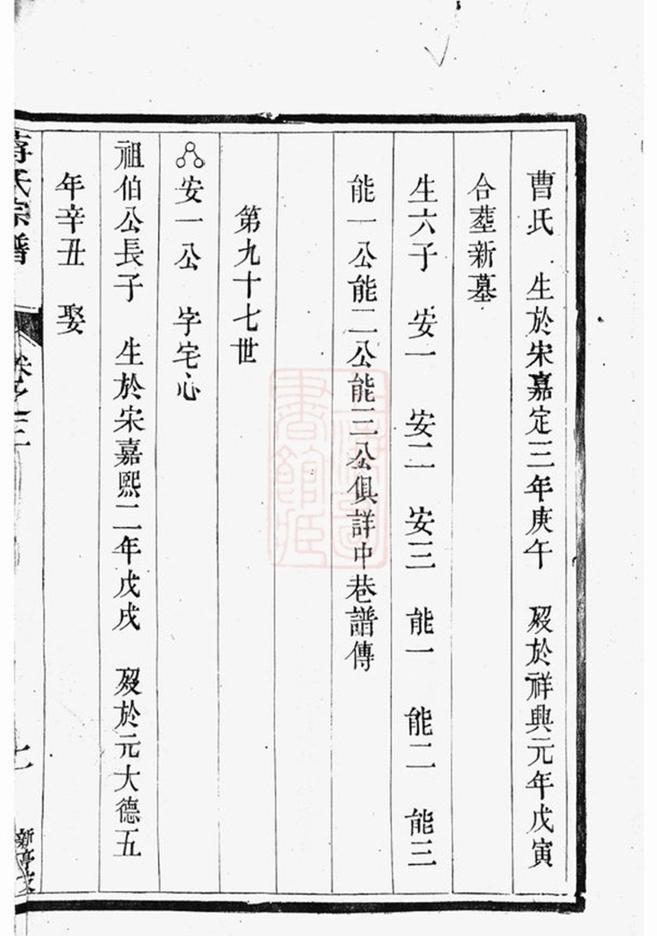 曹氏　生於宋嘉定三年庚午　歿於祥興元年戊寅
合塟新墓
生六子　安一　安二　安三　能一　能二　能三
能一公能二公能三公俱詳中巷譜傳
第九十七世
安一公　字宅心
祖伯公長子　生於宋嘉熙二年戊戌　歿於元大德五
年辛丑　娶
蔣氏宗譜　卷之三　七